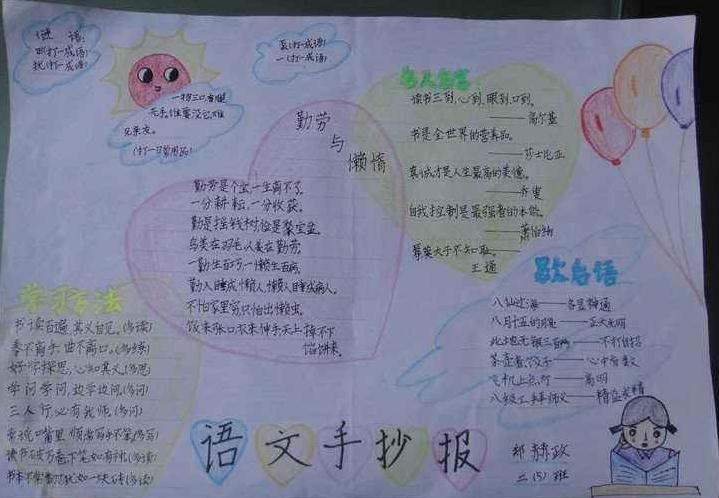 谜语:
田(打一成语)
扰(打一成语)
亥(打一成语)
一(打一成语)
一物三口,有腿
无手,谁要没它,难
见亲友。
(打一日常用品)
勤劳
与
懒惰
勤劳是个宝,一生离不了。
一分耕耘,一分收获。
勤是摇钱树,俭是聚宝盆。
鸟美在羽毛,人美在勤劳。
一勤生百巧,一懒生百病。
勤人睡成懒人,懒人睡成病人。
不怕家里穷,只怕出懒虫。
饭来张口,衣来伸手,天上掉不下
馅饼来。
名人名言
读书三到,心到,眼到,口到。
——高尔基
书是全世界的营养品。
——莎士比亚
真诚才是人生最高的美德。
——乔叟
自我控制是最强者的本能。
——萧伯纳
辱莫大于不知耻。
王通
歇后语
八仙过海——各显神通
八月十五的月亮——正大光明
此地无银三百两——不打自招
茶壶煮饺子——心中有数
飞机上点灯——高明
八级工拜师父——精益求精
学习方法
书读百遍,其义自见。(多读)
拳不离手,曲不离口。(多练)
好学探思,心知其义。(多思)
学问学问,边学边问。(多问)
三人行,必有我师。(多问)
读书破万卷下笔如有神(多读)
语文手抄报
郑
政
二(5)班